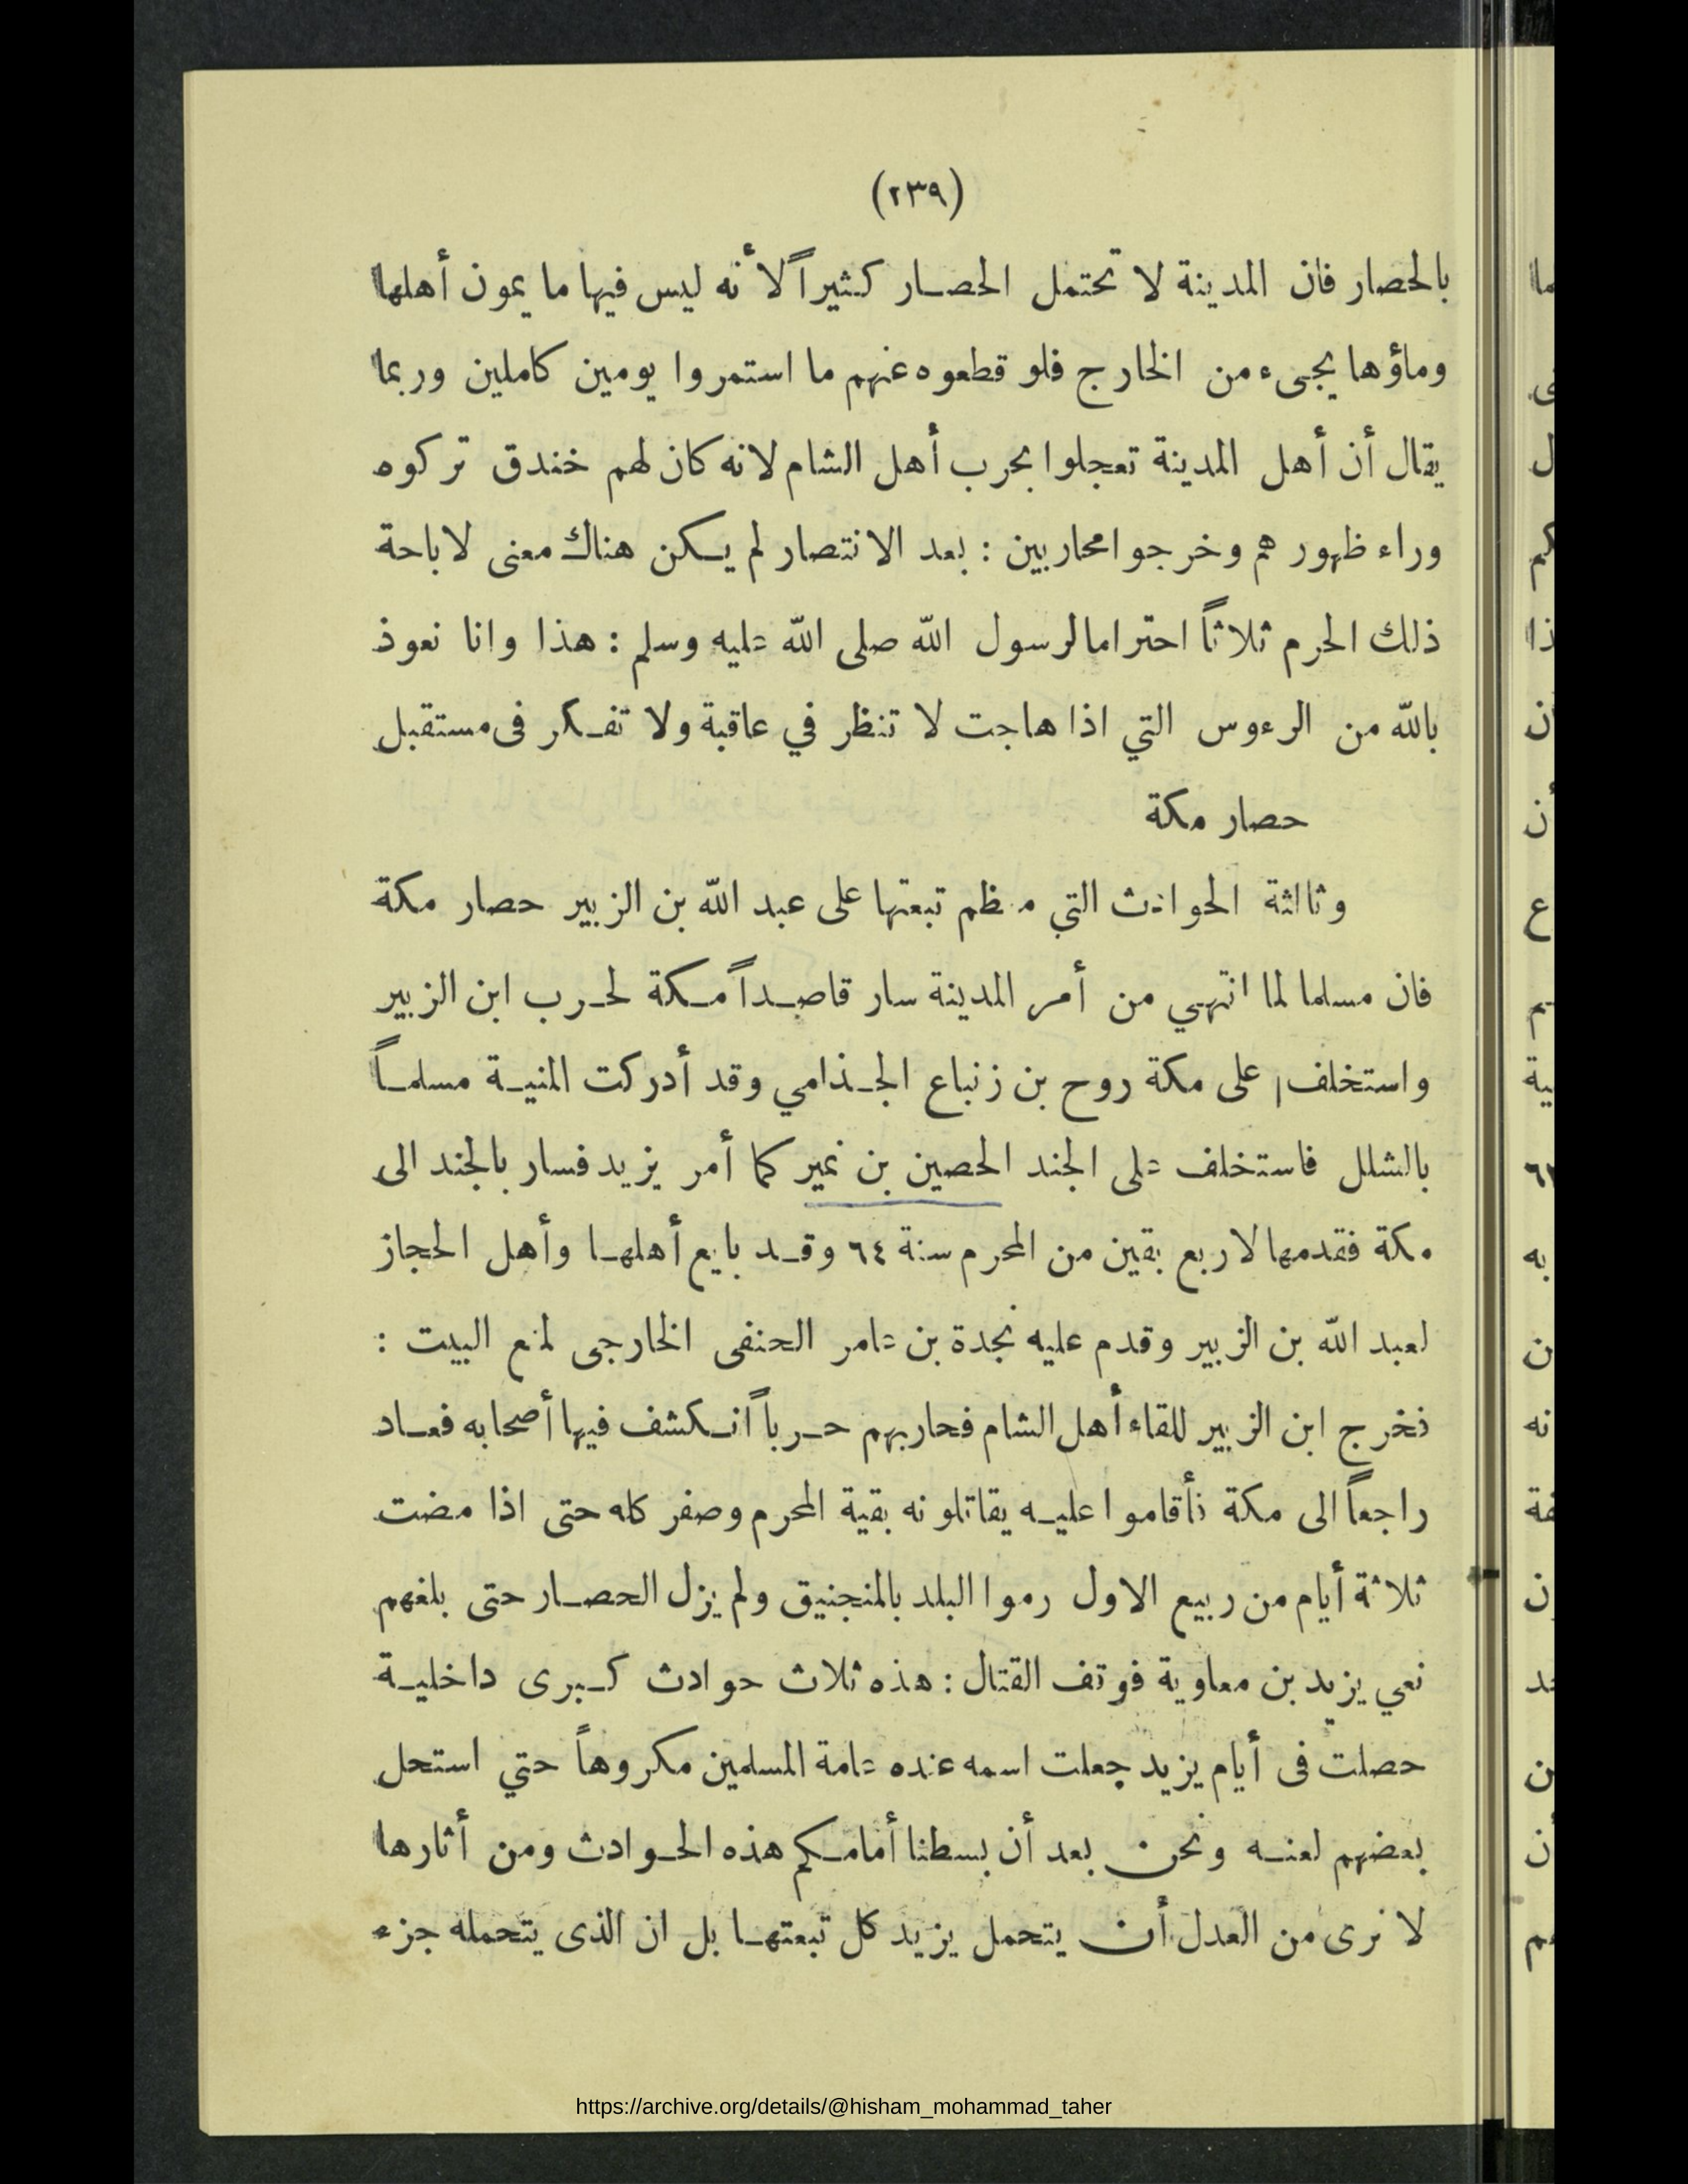 (٢٣٩)
بالحصار فان المدينة لا تحتمل الحصار كثيراً لأنه ليس فيها ما يمون أهلها
وماؤها يجىء من الخارج فلو قطعوه عنهم ما استمروا يومين كاملين وربما
يقال أن أهل المدينة تعجلوا بحرب أهل الشام لانه كان لهم خندق تركوه
وراء ظهورهم وخرجوا محاربين : بعد الانتصار لم يكن هناك معنى لاباحة
ذلك الحرم ثلاثاً احتراما لرسول الله صلى الله عليه وسلم : هذا وانا نعوذ
بالله من الرءوس التي اذا هاجت لا تنظر في عاقبة ولا تفكر فى مستقبل
حصار مكة
وثالثة الحوادث التي معظم تبعتها على عبد الله بن الزبير حصار مكة
فان مسلما لما انتهي من أمر المدينة سار قاصداً مكة لحرب ابن الزبير
واستخلف على مكة روح بن زنباع الجذامي وقد أدركت المنية مسلماً
بالشلل فاستخلف على الجند الحصين بن نمير كما أمر يزيد فسار بالجند الى
مكة فقدمها لاربع بقين من المحرم سنة ٦٤ وقد بايع أهلها وأهل الحجاز
لعبد الله بن الزبير وقدم عليه نجدة بن عامر الحنفى الخارجى لمنع البيت :
فخرج ابن الزبير للقاء أهل الشام فحاربهم حرباً انكشف فيها أصحابه فعاد
راجعاً الى مكة فأقاموا عليه يقاتلونه بقية المحرم وصفر كله حتى اذا مضت
ثلاثة أيام من ربيع الاول رموا البلد بالمنجنيق ولم يزل الحصار حتى بلغهم
نعي يزيد بن معاوية فوقف القتال : هذه ثلاث حوادث كبرى داخلية
حصلت فى أيام يزيد جعلت اسمه عنده عامة المسلمين مكروهاً حتي استحل
بعضهم لعنه ونحن بعد أن بسطنا أمامكم هذه الحوادث ومن أثارها
لا نرى من العدل أن يتحمل يزيد كل تبعتها بل ان الذى يتحمله جزء
https://archive.org/details/@hisham_mohammad_taher